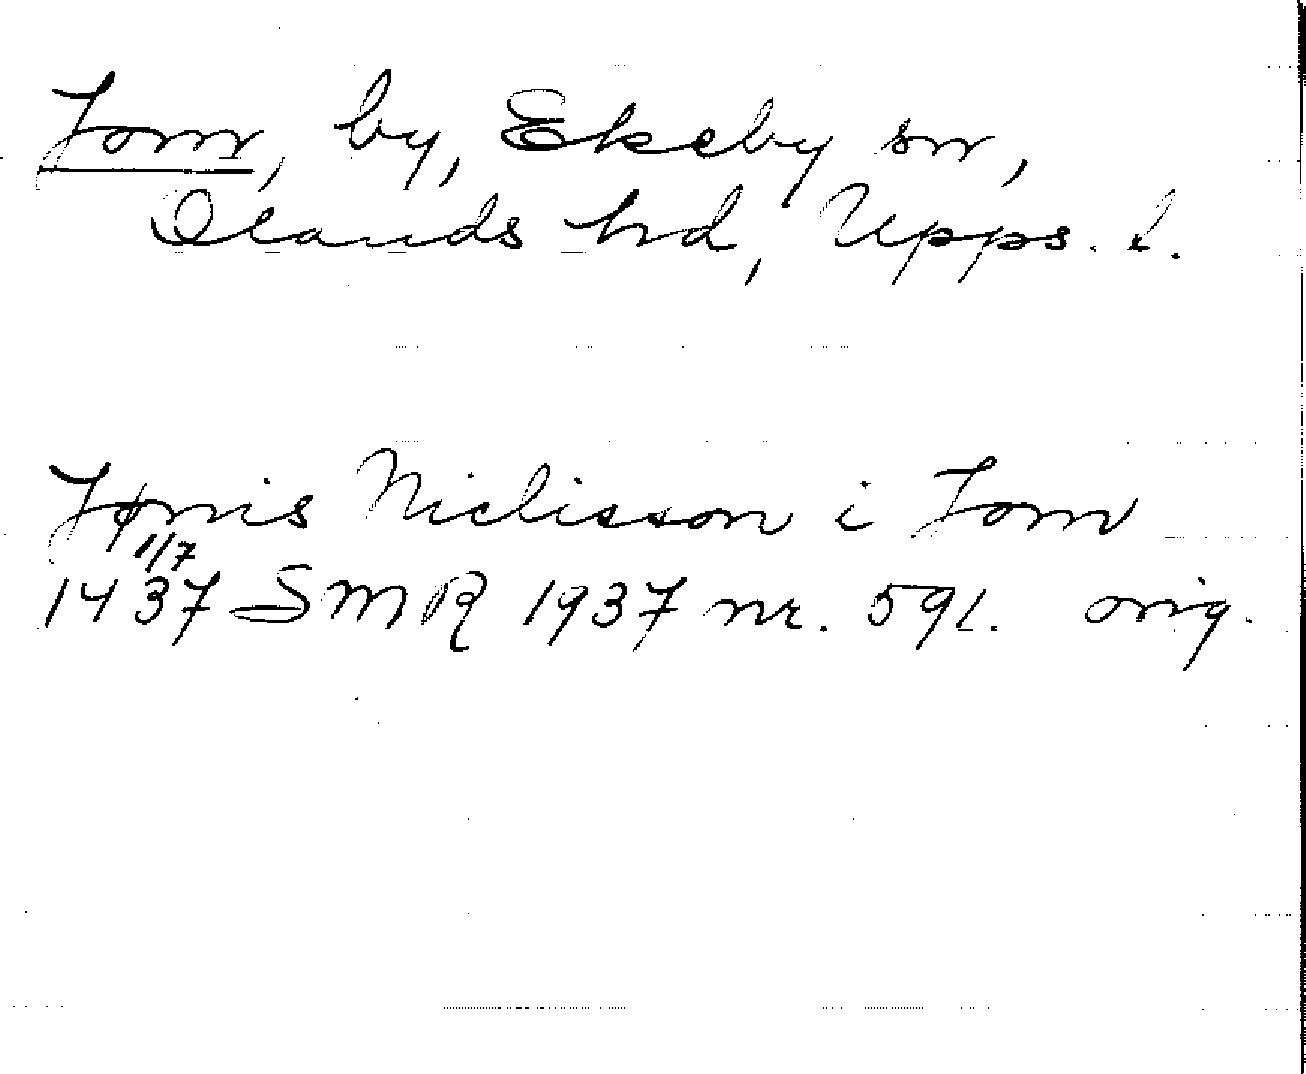 Tom, by, Ekeby sn,
Olands hd, Upps. l.
Tønis Niclisson i Tom
1/7
1437 SMR 1937 nr. 591. orig.